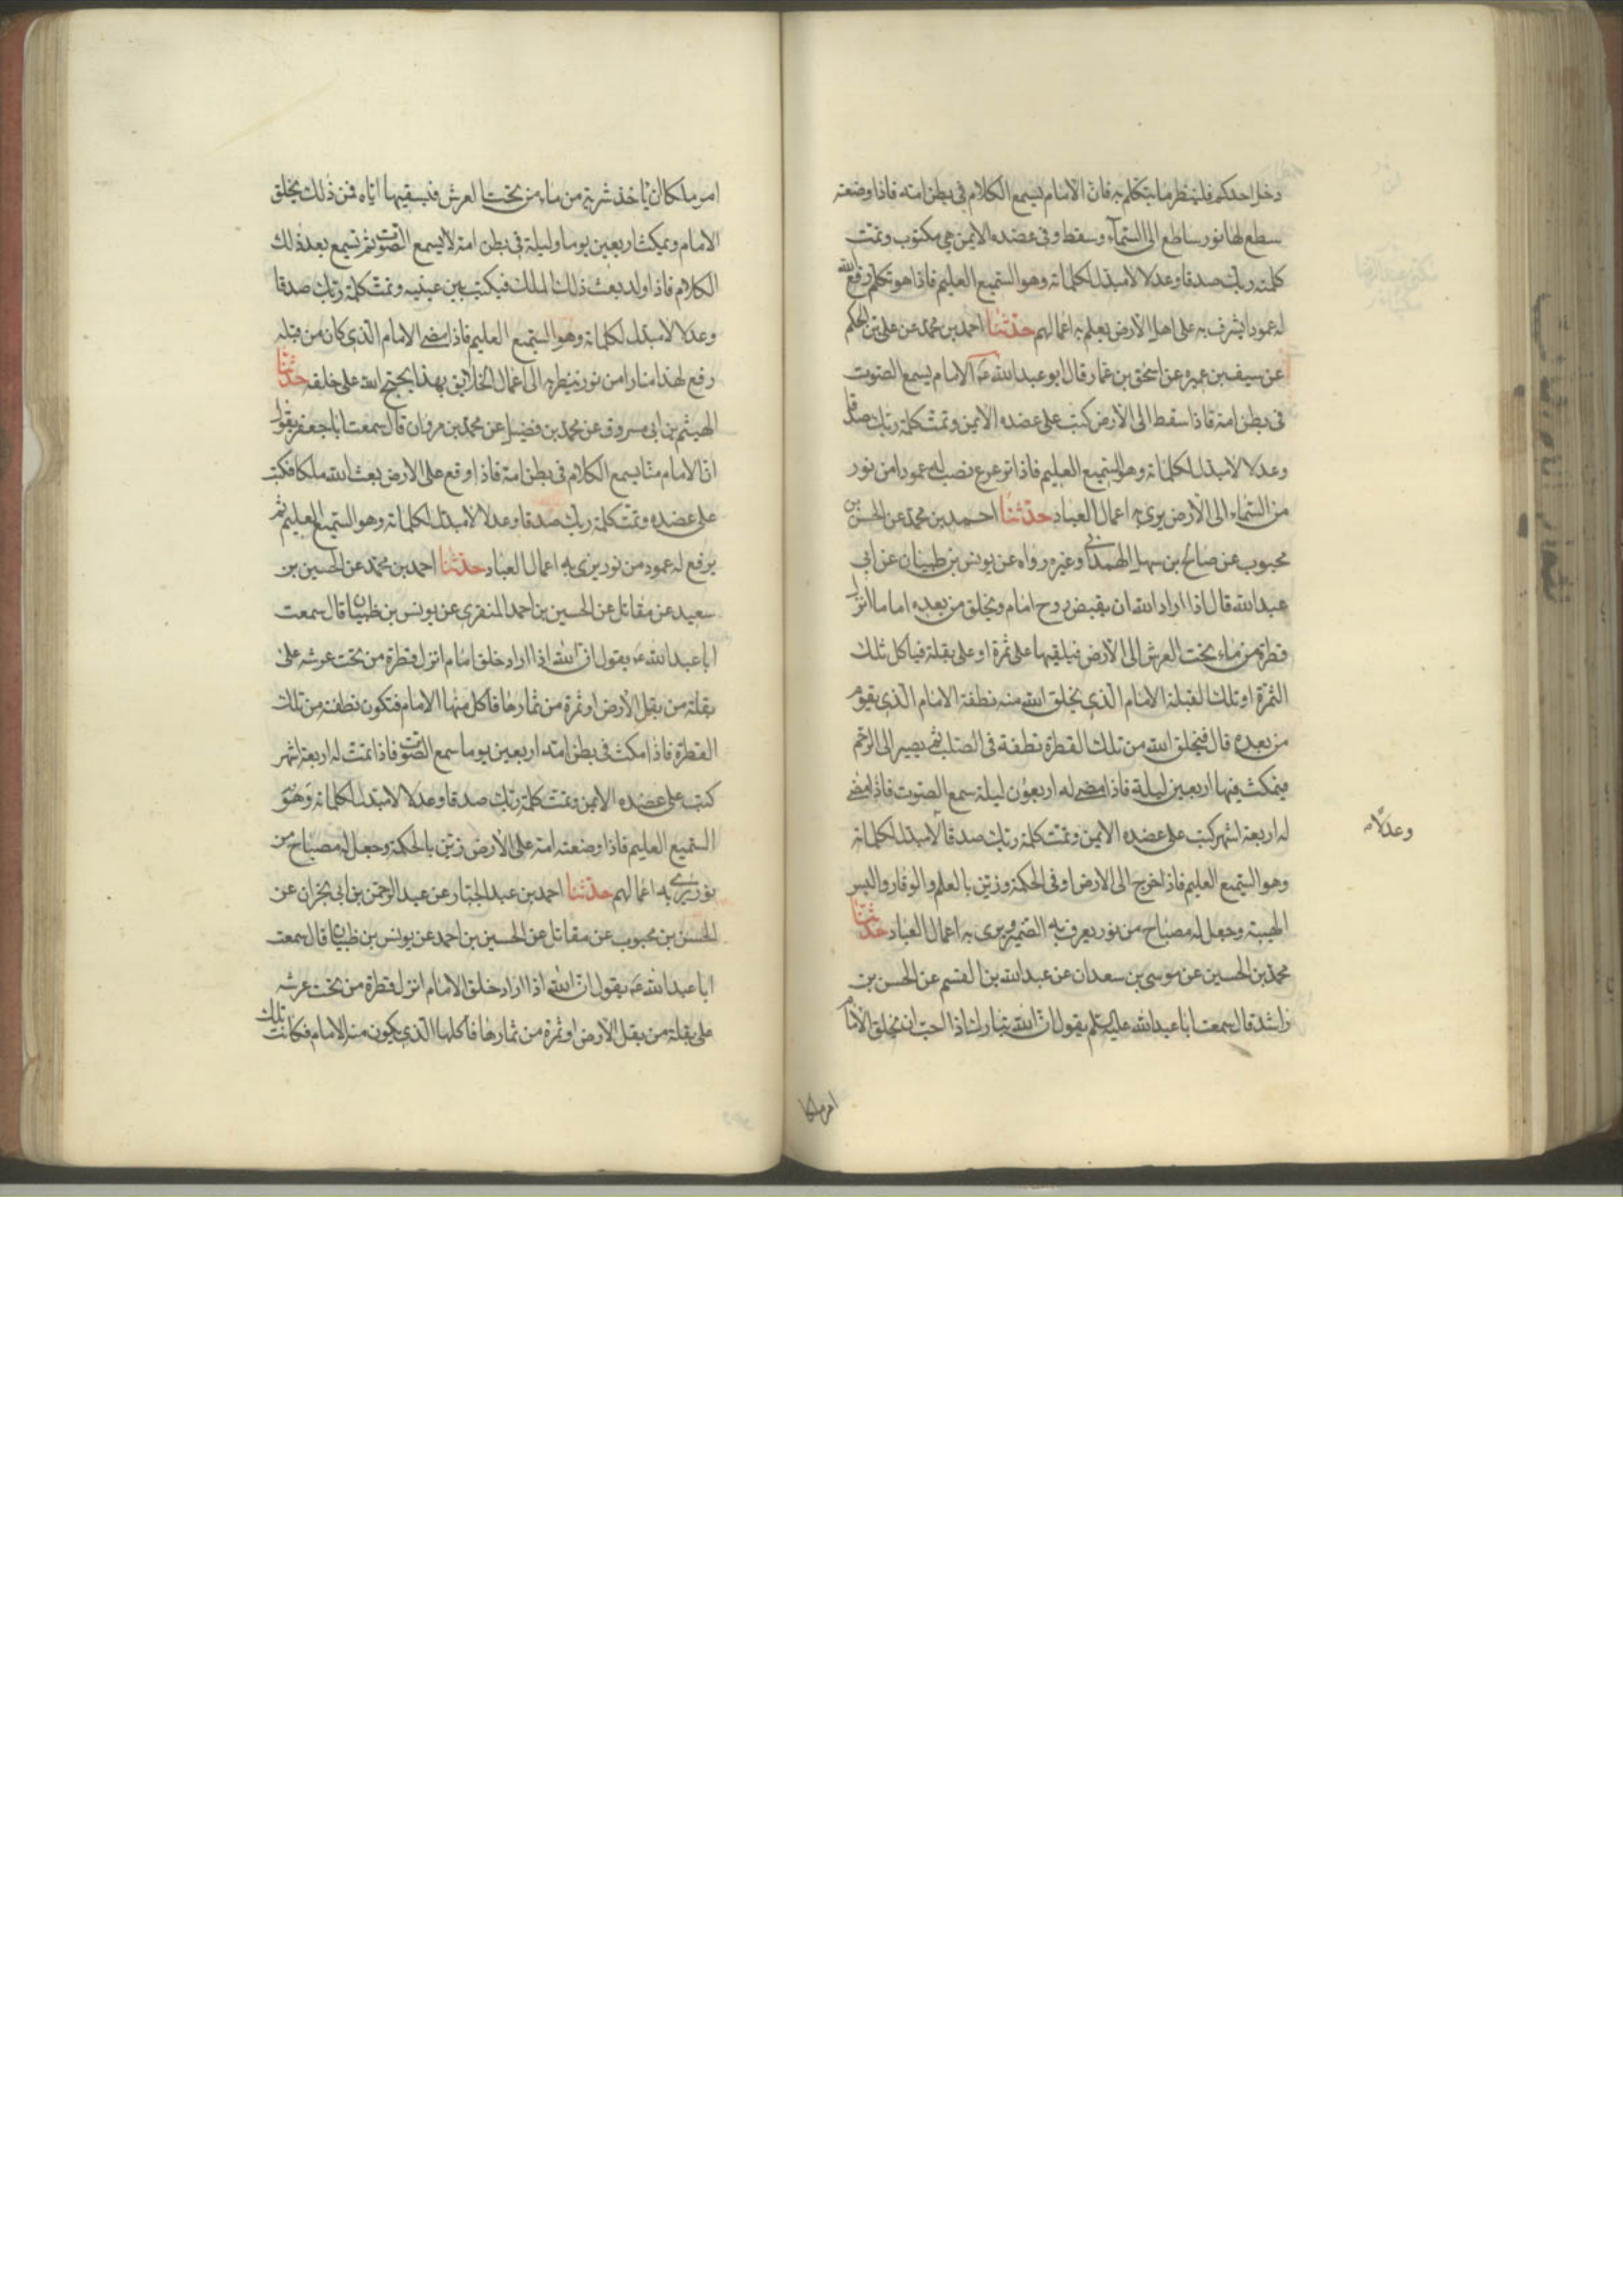 دخل احدكم فلينظر ما يتكلم به فان الامام يسمع الكلام في بطن امه فاذا وضعته
سطع لها نور ساطع الى السمآء وسقط وفى عضده الايمن مكتوب وتمت
كلمة ربك صدقا وعدلا لا مبدل لكلماته وهو السميع العليم فاذا هو تكلم رفع الله
له عمودا يشرف به على اهل الارض يعلم به اعمالهم حدثنا احمد بن محمد عن على بن الحكم
عن سيف بن عميره عن اسحق بن عمار قال ابو عبد الله عه الامام يسمع الصوت
فى بطن امه فاذا سقط الى الارض كتب على عضده الايمن وتمت كلمة ربك صدقا
وعدلا لا مبدل لكلماته وهو السميع العليم فاذا ترعرع نصب له عمودا من نور
من السماء الى الارض يرى به اعمال العباد حدثنا احمد بن محمد عن الحسن بن
محبوب عن صالح بن سهل الهمدانى وغيره رواه عن يونس بن ظبيان عن ابي
عبد الله قال اذا اراد الله ان يقبض روح امام ويخلق من بعده اماما انزل
قطرة من ماء تحت العرش الى الارض فيلقيها على ثمرة او على بقلة فياكل تلك
الثمرة او تلك البقلة الامام الذي يخلق الله منه نطفة الامام الذي يقوم
من بعده قال فيخلق الله من تلك القطرة نطفة فى الصلب ثم يصير الى الرحم
فيمكث فيها اربعين ليلة فاذا مضى له اربعون ليلة سمع الصوت فاذا مضى
له اربعة اشهر كتب على عضده الايمن وتمت كلمة ربك صدقا لا مبدل لكلماته
وعدلا
وهو السميع العليم فاذا خرج الى الارض اوتى الحكمة وزين بالعلم والوقار والبس
الهيبة وجعل له مصباح من نور يعرف به الضمير ويرى به اعمال العباد حدثنا
محمد بن الحسين عن موسى بن سعدان عن عبد الله بن القسم عن الحسن بن
راشد قال سمعت ابا عبد الله عليه السلم يقول ان الله تبارك اذا احب ان يخلق الامام
امر ملكا
امر ملكا ان ياخذ شربة من ماء من تحت العرش فيسقيها اياه فمن ذلك يخلق
الامام ويمكث اربعين يوما وليلة فى بطن امه لا يسمع الصوت ثم تسمع بعد ذلك
الكلام فاذا ولد بعث ذلك الملك فيكتب بين عينيه وتمت كلمة ربك صدقا
وعدلا لا مبدل لكلماته وهو السميع العليم فاذا مضى الامام الذي كان من قبله
رفع لهذا منارا من نور ينظر به الى اعمال الخلايق بهذا يحتج الله على خلقه حدثنا
الهيثم بن ابى مسروق عن محمد بن فضيل عن محمد بن مروان قال سمعت ابا جعفر يقول
ان الامام منا يسمع الكلام فى بطن امه فاذا وقع على الارض بعث الله ملكا فكتب
على عضده وتمت كلمة ربك صدقا وعدلا لا مبدل لكلماته وهو السميع العليم ثم
يرفع له عمود من نور يرى به اعمال العباد حدثنا احمد بن محمد عن الحسين بن
سعيد عن مقاتل عن الحسين بن احمد المنقرى عن يونس بن ظبيان قال سمعت
ابا عبد الله عه يقول ان الله اذا اراد خلق امام انزل قطرة من تحت عرشه على
بقلة من بقل الارض او ثمرة من ثمارها فاكل منها الامام فتكون نطفته من تلك
القطرة فاذا مكث فى بطن امه اربعين يوما سمع الصوت فاذا تمت له اربعة اشهر
كتب على عضده الايمن وتمت كلمة ربك صدقا وعدلا لا مبدل لكلماته وهو
السميع العليم فاذا وضعته امه على الارض زين بالحكمة وجعل له مصباح من
نور يرى به اعمالهم حدثنا احمد بن عبد الجبار عن عبد الرحمن بن ابى نجران عن
الحسن بن محبوب عن مقاتل عن الحسين بن احمد عن يونس بن ظبيان قال سمعت
ابا عبد الله عه يقول ان الله اذا اراد خلق الامام انزل قطرة من تحت عرشه
على بقلة من بقل الارض او ثمرة من ثمارها فاكلها الذي يكون منه الامام فكانت تلك